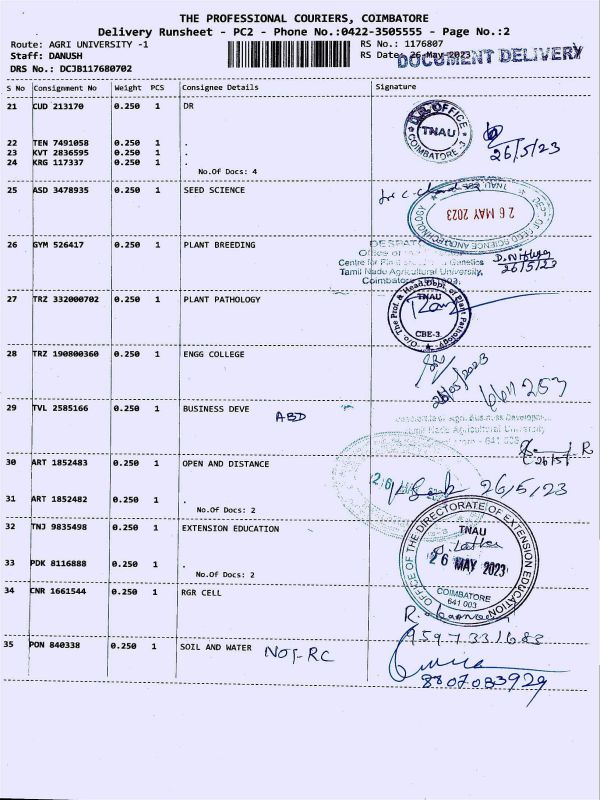 THE PROFESSIONAL COURIERS, COIMBATORE
Delivery Runsheet - PC2 - Phone No.:0422-3505555 - Page No.:2
Route: AGRI UNIVERSITY -1
RS No.: 1176807
Staff: DANUSH
RS Date: 26-May-2023
DOCUMENT DELIVERY
DRS No.: DCJB117680702
S No Consignment No Weight PCS Consignee Details Signature
21 CUD 213170 0.250 1 DR
OFFICE
TNAU
COIMBATORE-3
26/5/23
22 TEN 7491058 0.250 1 .
23 KVT 2836595 0.250 1 .
24 KRG 117337 0.250 1 .
No.Of Docs: 4
25 ASD 3478935 0.250 1 SEED SCIENCE
26 MAY 2023
26 GYM 526417 0.250 1 PLANT BREEDING
Tamil Nadu Agricultural University,
26/5/23
27 TRZ 332000702 0.250 1 PLANT PATHOLOGY
O/o The Prof. & Head, Dept. of Plant Pathology
TNAU
CBE-3
28 TRZ 190800360 0.250 1 ENGG COLLEGE
26/05/2023
29 TVL 2585166 0.250 1 BUSINESS DEVE
ABD
Tamil Nadu Agricultural University
641 003
R
26/5/
30 ART 1852483 0.250 1 OPEN AND DISTANCE
26/5/23
31 ART 1852482 0.250 1 .
No.Of Docs: 2
32 TNJ 9835498 0.250 1 EXTENSION EDUCATION
OFFICE OF THE DIRECTORATE OF EXTENSION EDUCATION
TNAU
26 MAY 2023
COIMBATORE
641 003
33 PDK 8116888 0.250 1 .
No.Of Docs: 2
34 CNR 1661544 0.250 1 RGR CELL
9597331683
35 PON 840338 0.250 1 SOIL AND WATER
NOT-RC
8807083929